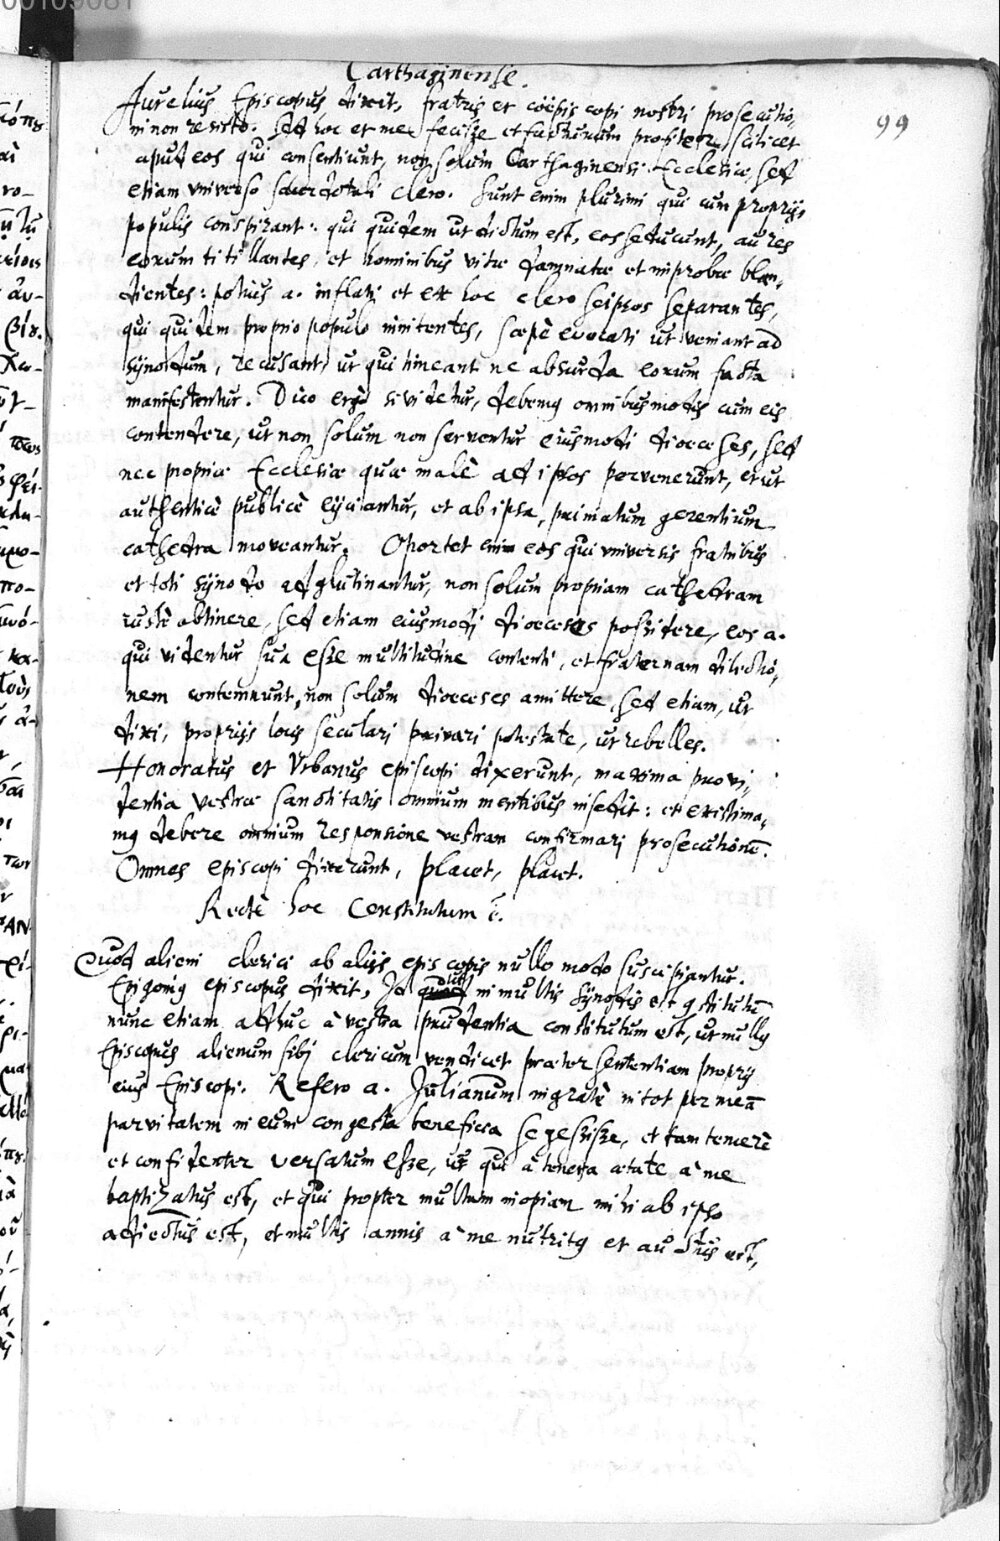 Carthaginense.
99
Aurelius Episcopus dixit, fratris et coëpiscopi nostri prosecutio,
ni non resisto. sed hoc et me fecisse et facturum profiteor, scilicet
apud eos qui consentiunt, non solum Carthaginensi Ecclesiæ, sed
etiam vniverso sacerdotali clero. sunt enim plurimi qui cum proprijs
populis conspirant: qui quidem ut dictum est, eos seducunt, aures
eorum titillantes, et hominibus vitæ damnatæ et improbæ blan,
dientes: potius a. inflati et ex hoc clero seipsos separantes,
qui quidem proprio populo innitentes, sæpè evocati ut veniant ad
synodum, recusant, ut qui timeant ne absurda eorum facta
manifestentur. Dico ergò si videtur, debemq omnibus modis cum eis
contendere, ut non solum non serventur eiusmodi dioeceses, sed
nec propriæ Ecclesiæ quæ malè ad ipsos pervenerunt, et ut
authenticè publicè eijciantur, et ab ipsa, primatum gerentium
cathedra moveantur. Oportet enim eos qui vniversis fratribus
et toti synodo adglutinantur, non solum propriam cathedram
iustè obtinere, sed etiam eiusmodj dioeceses possidere, eos a.
qui videntur sua esse multitudine contenti, et fraternam dilectio,
nem contemnunt, non solum dioeceses amittere, sed etiam, ut
dixi, proprijs locis seculari privari potestate, ut rebelles.
Honoratus et Vrbanus episcopi dixerunt, maxima provi,
dentia vestræ sanctitatis omnium mentibus insedit: et existima,
mq debere omnium responsione vestram confirmari prosecutionē.
Omnes episcopi dixerunt, placet, placet.
Rectè hoc Constitutum ē.
Quod alieni clerici ab alijs episcopis nullo modo suscipiantur.
Epigoniq episcopus dixit, Id quod in multis synodis est qstitutū
nunc etiam adhuc à vestra prudentia constitutum est, ut nullq
Episcopus alienum sibj clericum vendicet præter sententiam proprij
eius Episcopi. Refero a. Julianum ingratè in tot per meā
parvitatem in eum congesta beneficia se gessisse, et tam temerè
et confidenter versatum esse, ut qui à tenera ætate à me
baptizatus est, et qui propter multam inopiam mihi ab ipso
adiectus est, et multis annis à me nutritq et auctus est,